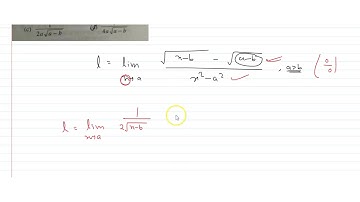 (c) 1/(2a√(a-b)) (d) 1/(4a√(a-b))
l = lim x→a (√(x-b) - √(a-b))/(x²-a²), a>b (0/0)
l = lim x→a 1/(2√(x-b))